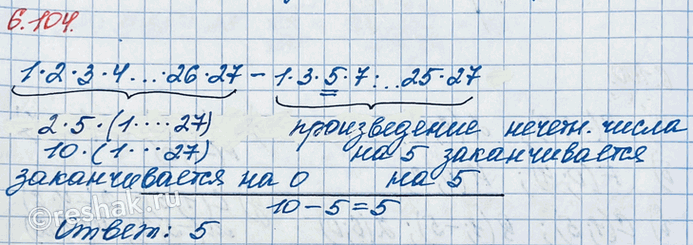 6.104.
1·2·3·4...·26·27 - 1·3·5·7·...25·27
2·5·(1····27) произведение нечетн. числа
10·(1····27) на 5 заканчивается
заканчивается на 0 на 5
10-5=5
©reshak.ru
Ответ: 5